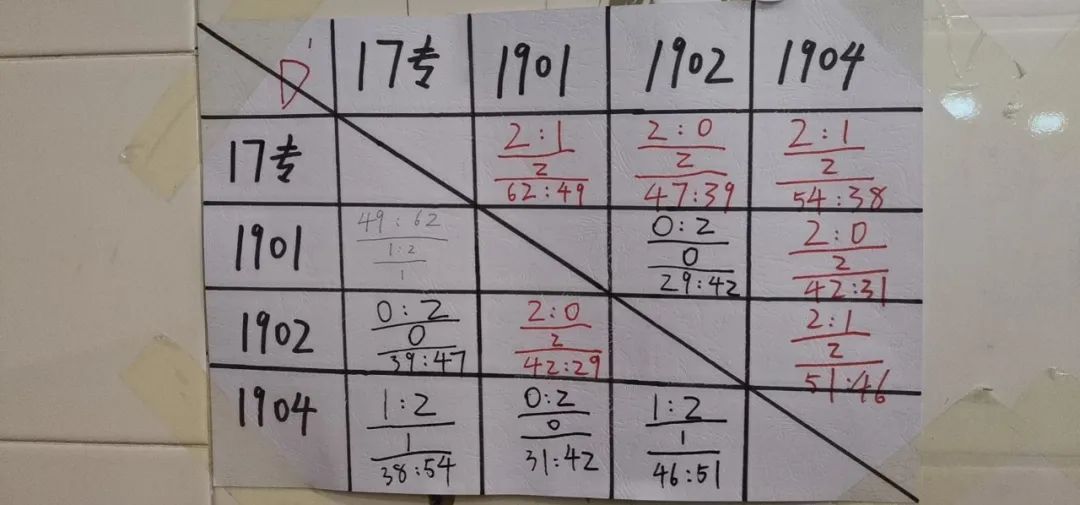 D 17专 1901 1902 1904
17专 2:1 2:0 2:1
2 2 2
62:49 47:39 54:38
1901 49:62 0:2 2:0
1:2 0 2
1 29:42 42:31
1902 0:2 2:0 2:1
0 2 2
39:47 42:29 51:46
1904 1:2 0:2 1:2
1 0 1
38:54 31:42 46:51